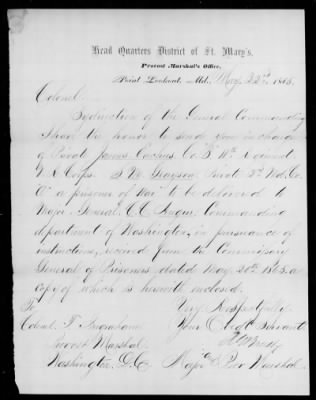 Head Quarters District of St. Mary's,
Provost Marshal's Office,
Point Lookout, Md. May 22nd, 1865.
Colonel
By direction of the General Commanding
I have the honor to send you in charge
of Private James Co. 11th Regiment
V. R. Corps. Grayson Private 2nd Md. Co.
"C" a prisoner of War to be delivered to
Major General C C Augur Commanding
department of Washington, in pursuance of
instructions, received from the Commissary
General of Prisoners, dated May. 20th 1865. a
copy of which is herewith enclosed.
To Very Respectfully
Colonel. T. Ingraham Your Obdt Servant
Provost Marshal
Washington, D.C. Major and Pro Marshal.